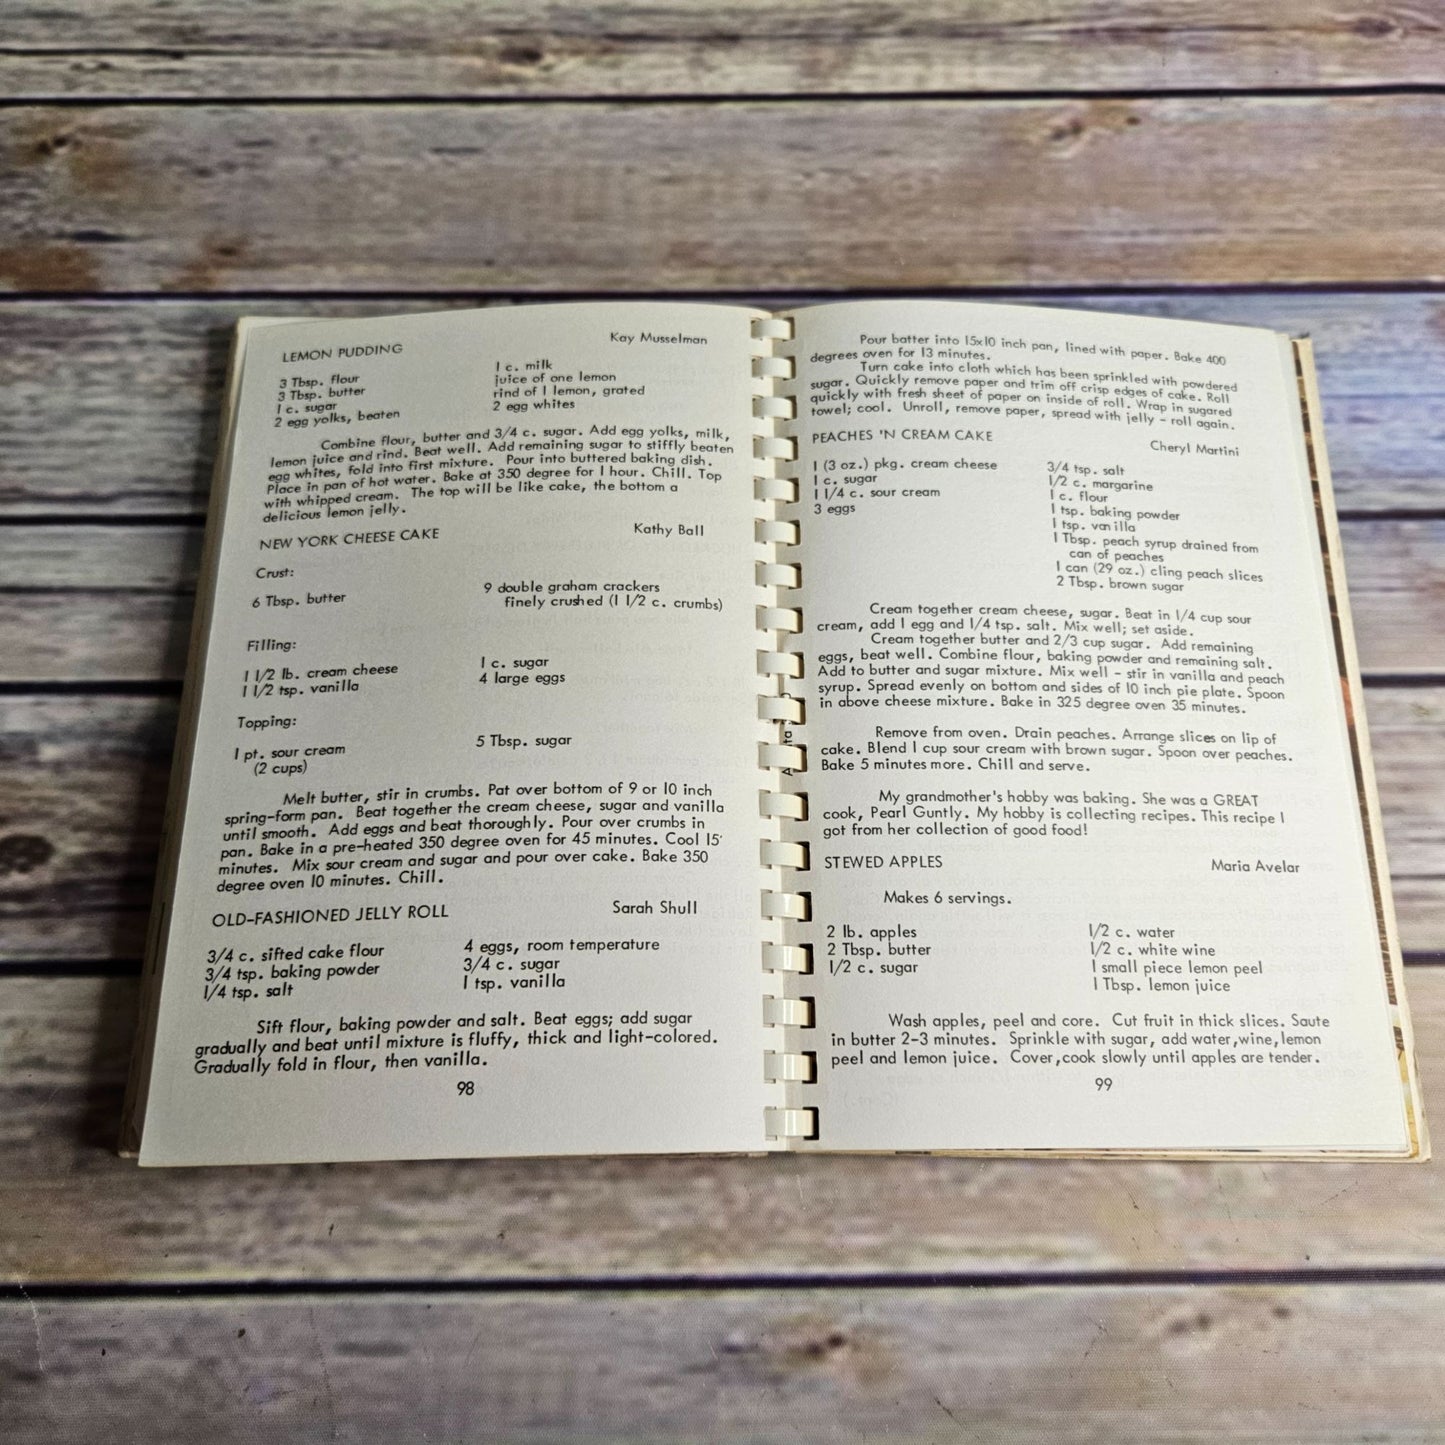 LEMON PUDDING
Kay Musselman
3 Tbsp. flour
3 Tbsp. butter
1 c. sugar
2 egg yolks, beaten
1 c. milk
juice of one lemon
rind of 1 lemon, grated
2 egg whites
Combine flour, butter and 3/4 c. sugar. Add egg yolks, milk,
lemon juice and rind. Beat well. Add remaining sugar to stiffly beaten
egg whites, fold into first mixture. Pour into buttered baking dish.
Place in pan of hot water. Bake at 350 degree for 1 hour. Chill. Top
with whipped cream. The top will be like cake, the bottom a
delicious lemon jelly.
NEW YORK CHEESE CAKE
Kathy Ball
Crust:
6 Tbsp. butter
9 double graham crackers
finely crushed (1 1/2 c. crumbs)
Filling:
1 1/2 lb. cream cheese
1 1/2 tsp. vanilla
1 c. sugar
4 large eggs
Topping:
1 pt. sour cream
(2 cups)
5 Tbsp. sugar
Melt butter, stir in crumbs. Pat over bottom of 9 or 10 inch
spring-form pan. Beat together the cream cheese, sugar and vanilla
until smooth. Add eggs and beat thoroughly. Pour over crumbs in
pan. Bake in a pre-heated 350 degree oven for 45 minutes. Cool 15
minutes. Mix sour cream and sugar and pour over cake. Bake 350
degree oven 10 minutes. Chill.
OLD-FASHIONED JELLY ROLL
Sarah Shull
3/4 c. sifted cake flour
3/4 tsp. baking powder
1/4 tsp. salt
4 eggs, room temperature
3/4 c. sugar
1 tsp. vanilla
Sift flour, baking powder and salt. Beat eggs; add sugar
gradually and beat until mixture is fluffy, thick and light-colored.
Gradually fold in flour, then vanilla.
98
Pour batter into 15x10 inch pan, lined with paper. Bake 400
degrees oven for 13 minutes.
Turn cake into cloth which has been sprinkled with powdered
sugar. Quickly remove paper and trim off crisp edges of cake. Roll
quickly with fresh sheet of paper on inside of roll. Wrap in sugared
towel; cool. Unroll, remove paper, spread with jelly - roll again.
PEACHES 'N CREAM CAKE
Cheryl Martini
1 (3 oz.) pkg. cream cheese
1 c. sugar
1 1/4 c. sour cream
3 eggs
3/4 tsp. salt
1/2 c. margarine
1 c. flour
1 tsp. baking powder
1 tsp. vanilla
1 Tbsp. peach syrup drained from
can of peaches
1 can (29 oz.) cling peach slices
2 Tbsp. brown sugar
Cream together cream cheese, sugar. Beat in 1/4 cup sour
cream, add 1 egg and 1/4 tsp. salt. Mix well; set aside.
Cream together butter and 2/3 cup sugar. Add remaining
eggs, beat well. Combine flour, baking powder and remaining salt.
Add to butter and sugar mixture. Mix well - stir in vanilla and peach
syrup. Spread evenly on bottom and sides of 10 inch pie plate. Spoon
in above cheese mixture. Bake in 325 degree oven 35 minutes.
Remove from oven. Drain peaches. Arrange slices on lip of
cake. Blend 1 cup sour cream with brown sugar. Spoon over peaches.
Bake 5 minutes more. Chill and serve.
My grandmother's hobby was baking. She was a GREAT
cook, Pearl Guntly. My hobby is collecting recipes. This recipe I
got from her collection of good food!
STEWED APPLES
Maria Avelar
Makes 6 servings.
2 lb. apples
2 Tbsp. butter
1/2 c. sugar
1/2 c. water
1/2 c. white wine
1 small piece lemon peel
1 Tbsp. lemon juice
Wash apples, peel and core. Cut fruit in thick slices. Saute
in butter 2-3 minutes. Sprinkle with sugar, add water,wine,lemon
peel and lemon juice. Cover,cook slowly until apples are tender.
99